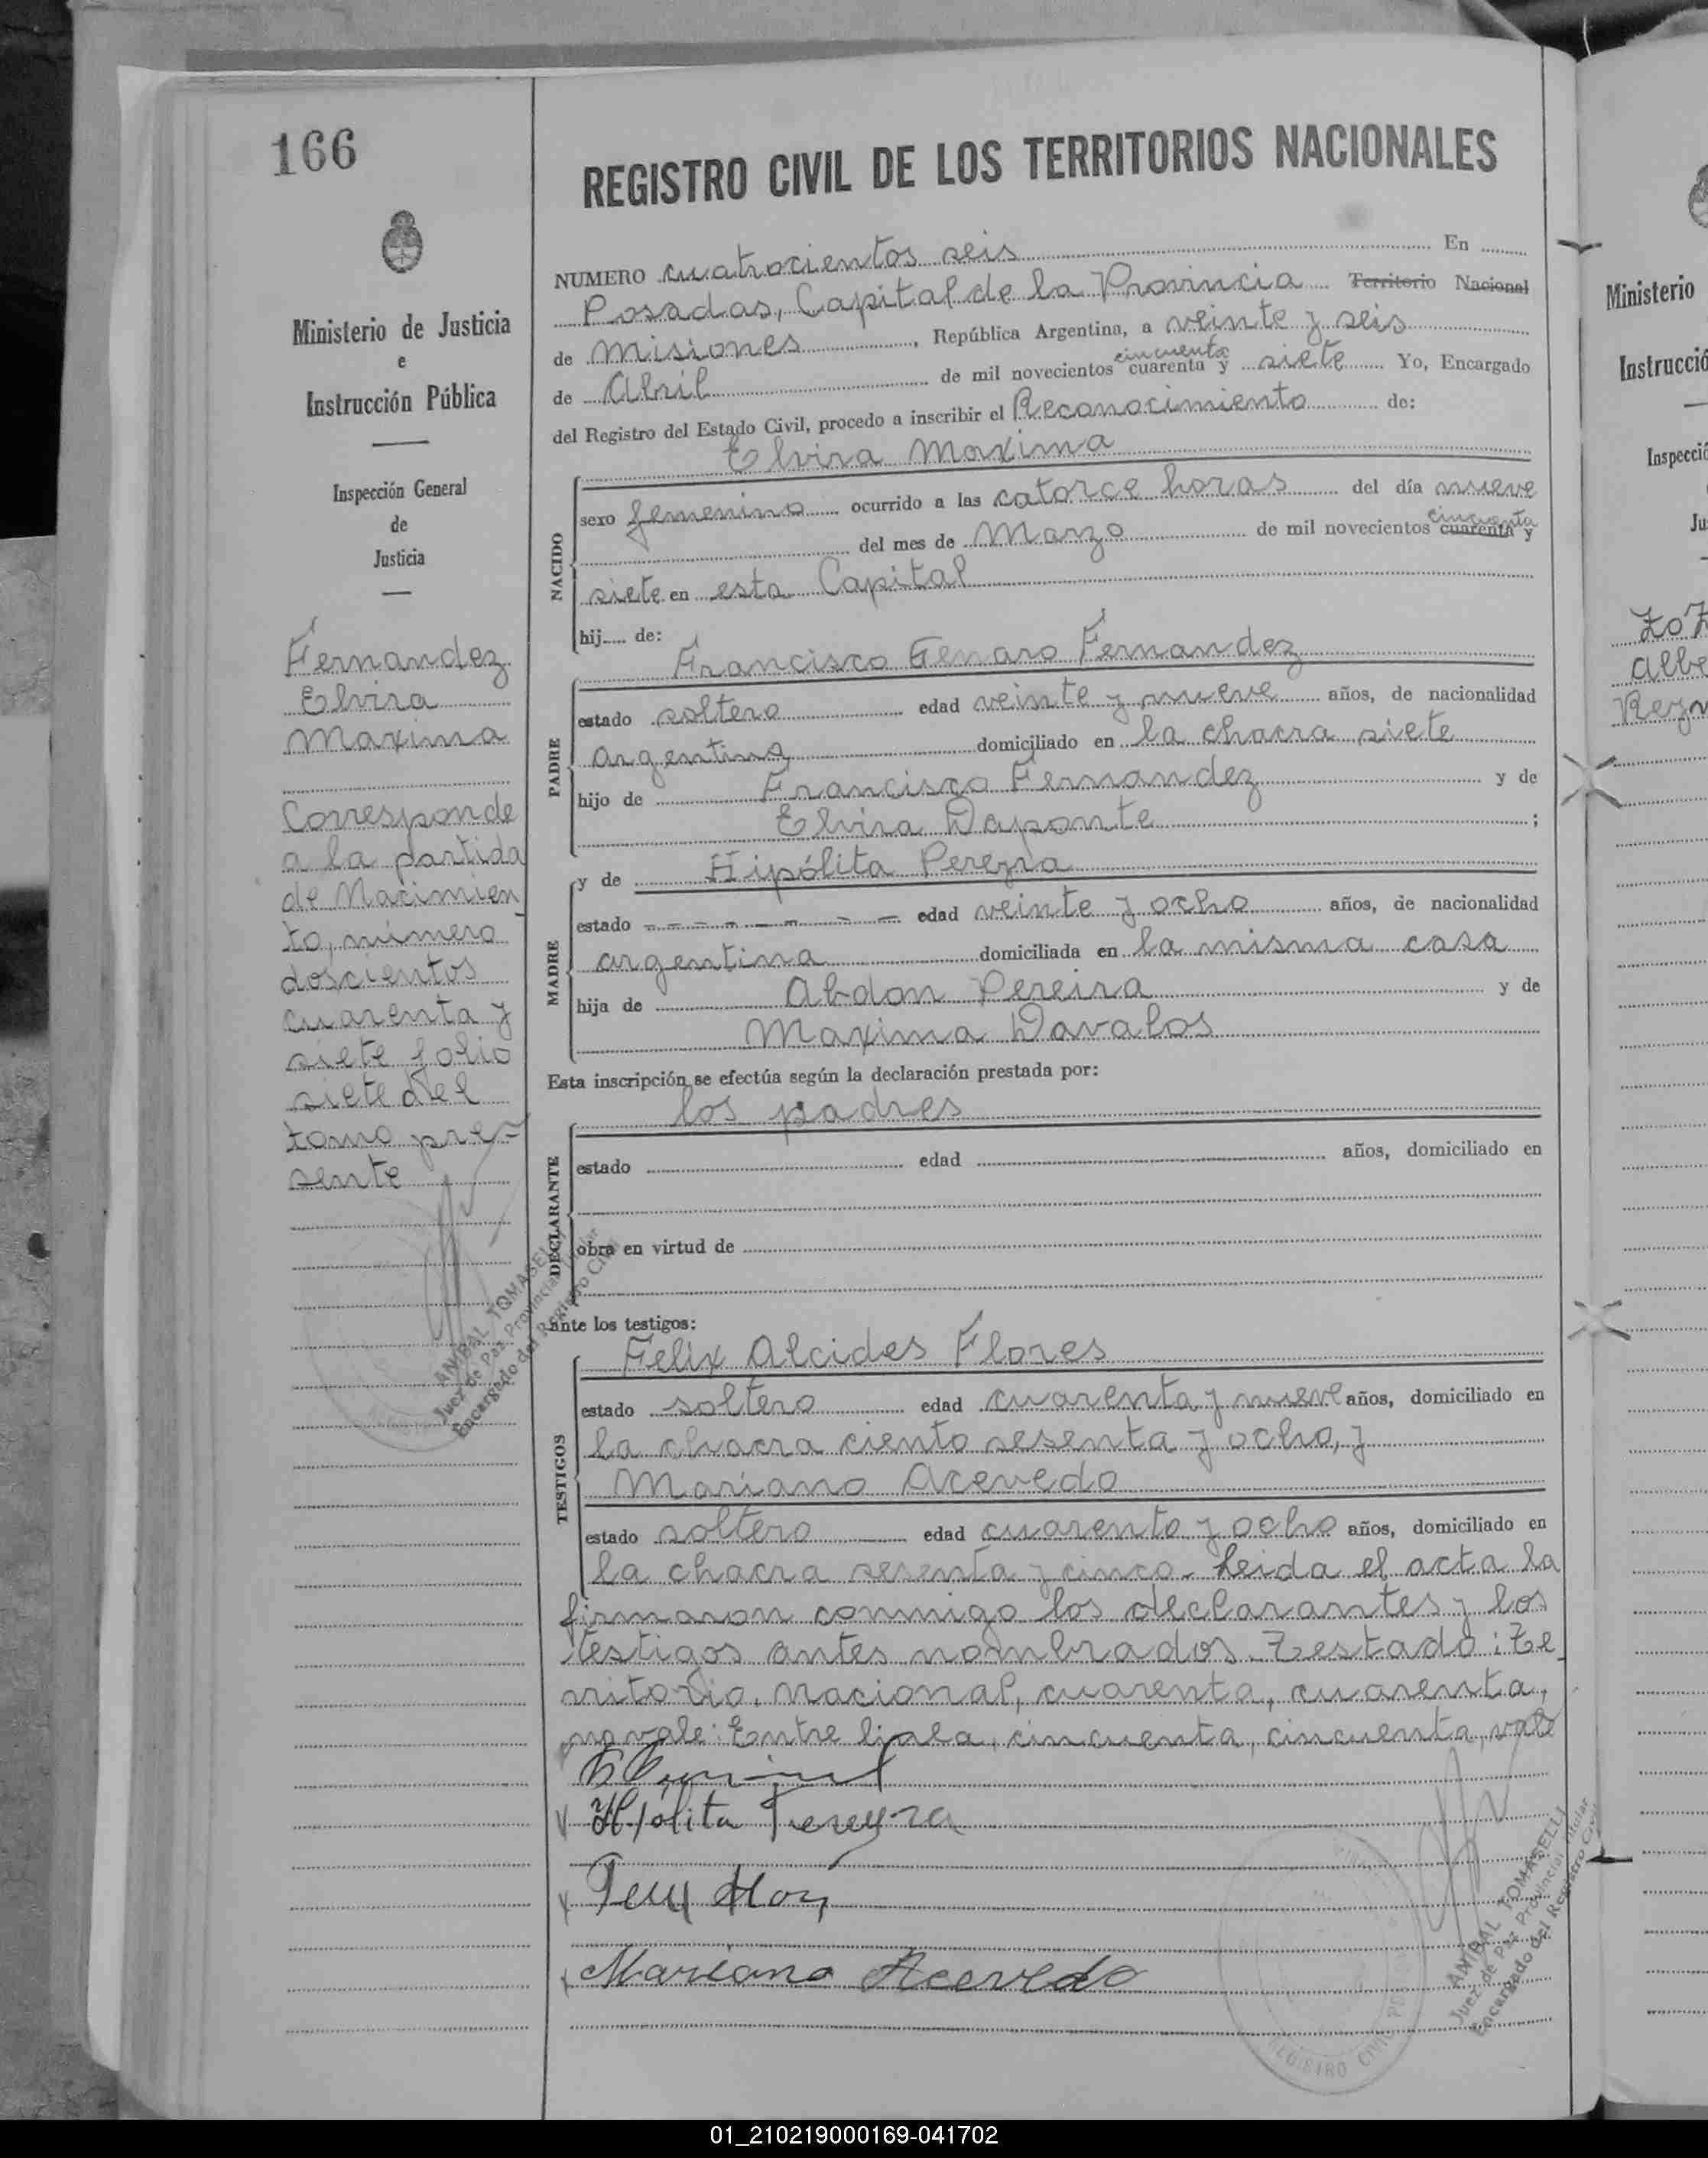 166
Ministerio de Justicia
e
Instrucción Pública
Inspección General
de
Justicia
Fernandez
Elvira
Maxima
Corresponde
a la partida
de Nacimien_
to, número
doscientos
cuarenta y
siete folio
siete del
tomo pre-
sente
ANIBAL TOMASELLI
Juez de Paz Provincial Titular
Encargado del Registro Civil
REGISTRO CIVIL DE LOS TERRITORIOS NACIONALES
NUMERO cuatrocientos seis En
Posadas, Capital de la Provincia Territorio Nacional
de Misiones, República Argentina, a veinte y seis
cincuenta
de Abril de mil novecientos cuarenta y siete Yo, Encargado
del Registro del Estado Civil, procedo a inscribir el Reconocimiento de:
Elvira Maxima
NACIDO
sexo femenino ocurrido a las catorce horas del día nueve
cincuenta
del mes de Marzo de mil novecientos cuarenta y
siete en esta Capital
hij.... de:
Francisco Genaro Fernandez
PADRE
estado soltero edad veinte y nueve años, de nacionalidad
argentina domiciliado en la chacra siete
hijo de Francisco Fernandez y de
Elvira Daponte;
y de Hipólita Pereyra
MADRE
estado - - - - - - edad veinte y ocho años, de nacionalidad
argentina domiciliada en la misma casa
hija de Abdon Pereira y de
Maxima Davalos
Esta inscripción se efectúa según la declaración prestada por:
los padres
DECLARANTE
estado edad años, domiciliado en
obra en virtud de
ante los testigos:
Felix Alcides Flores
TESTIGOS
estado soltero edad cuarenta y nueve años, domiciliado en
la chacra ciento sesenta y ocho, y
Mariano Acevedo
estado soltero edad cuarenta y ocho años, domiciliado en
la chacra sesenta y cinco. Leida el acta la
firmaron conmigo los declarantes y los
testigos antes nombrados. Testado: Te_
rritorio, Nacional, cuarenta, cuarenta,
no vale: Entre linea, cincuenta, cincuenta, vale
Hipólita Pereyra
Mariano Acevedo
ANIBAL TOMASELLI
Juez de Paz Provincial Titular
Encargado del Registro Civil
REGISTRO CIVIL
Ministerio
Instrucció
Inspecció
Ju
Albe
Reyn
01_210219000169-041702